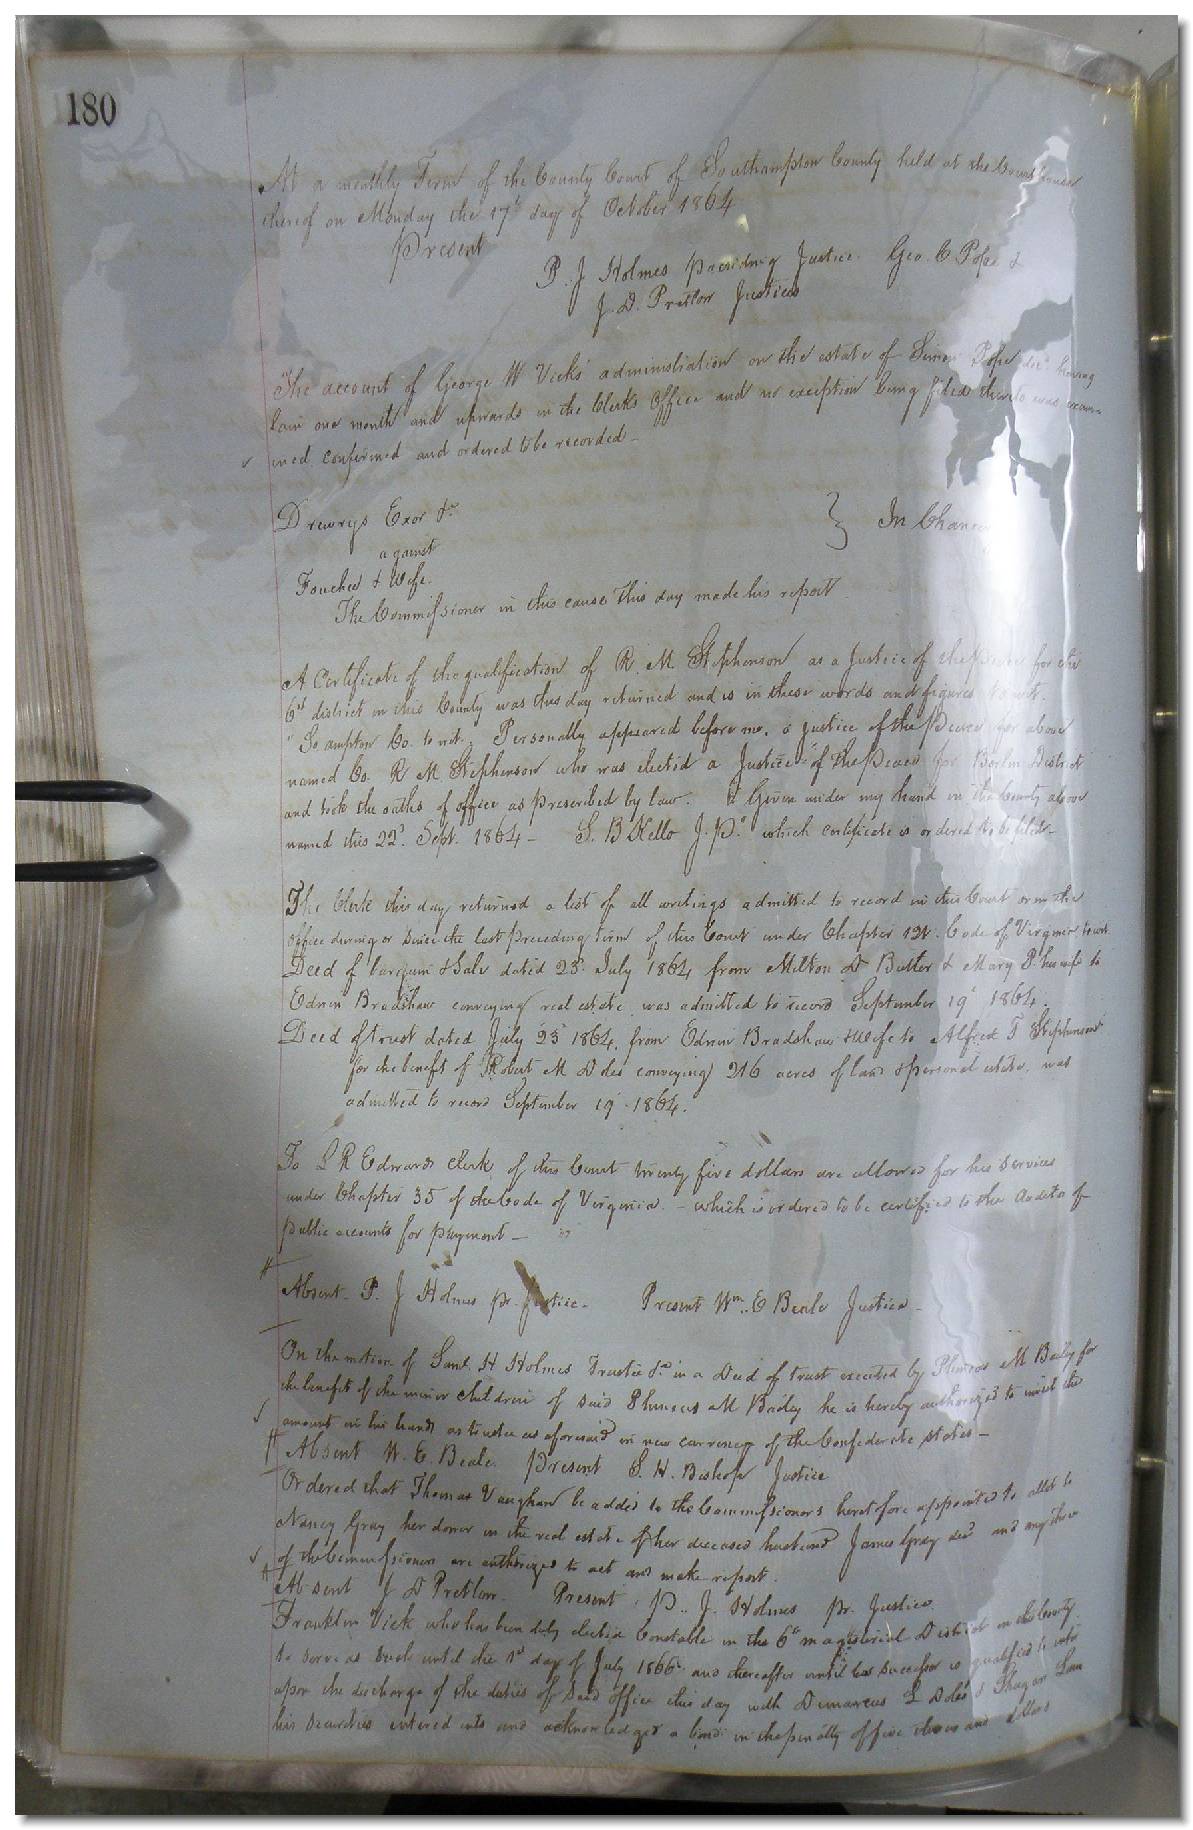 180
At a monthly Term of the County Court of Southampton County held at the Courthouse
thereof on Monday the 17th day of October 1864
Present
P. J Holmes presiding Justice Geo. C Pope &
J. D. Pretlow Justices
The account of George W Vicks administration on the estate of Simon Pope decd having
lain one month and upwards in the Clerks Office and no exception being filed thereto was exam-
ined confirmed and ordered to be recorded -
Drewrys Exor &c
In Chancery
against
& Wife.
The Commissioner in this cause this day made his report
A Certificate of the qualification of R. M Stephenson as a Justice of the Peace for the
6th district in this County was this day returned and is in these words and figures to wit.
"So ampton Co. to wit. Personally appeared before me, a justice of the Peace for above
named Co. R M Stephenson who was elected a Justice of the Peace for Berlin District
and took the oaths of office as prescribed by law. Given under my hand in the County above
named this 22d. Sept. 1864 - S. B Kello J. P." which certificate is ordered to be filed -
The Clerk this day returned a list of all writings admitted to record in this Court or in the
office during or since the last preceding term of this Court under Chapter 121. Code of Virginia to wit
Deed of bargain & Sale dated 23 July 1864 from Milton D Butler & Mary P his wife to
Edwin Bradshaw conveying real estate was admitted to record September 19th 1864.
Deed of trust dated July 23d 1864, from Edwin Bradshaw & Wife to Alfred T Stephenson
for the benefit of Robert M Doles conveying 216 acres of land & personal estate, was
admitted to record September 19th 1864.
To L R Edwards Clerk of this Court twenty five dollars are allowed for his services
under Chapter 35 of the Code of Virginia. - which is ordered to be certified to the Auditor of
public accounts for payment -
Absent P. J Holmes pr. Justice - Present Wm. E Beale Justice -
On the motion of Saml. H Holmes Trustee &c in a Deed of trust executed by Phineas M Baily for
the benefit of the minor children of said Phineas M Bailey he is hereby authorized to invest the
amount in his hands as trustee as aforesaid in new currency of the Confederate states -
Absent W. E. Beale. Present S. H. Bishop Justice
Ordered that Thomas Vaughan be added to the Commissioners heretofore appointed to allot to
Nancy Gray her dower in the real estate of her deceased husband James Gray decd and any three
of the Commissioners are authorized to act and make report.
Absent J D Pretlow. Present P. J. Holmes pr. Justice.
Franklin Vick who has been duly elected Constable in the 6th magisterial District in this County
to serve as such until the 1st day of July 1866 and thereafter until his successor is qualified to enter
upon the discharge of the duties of said office this day with Demarcus L Doles &
his securities entered into and acknowledged a bond in the penalty of five thousand dollars